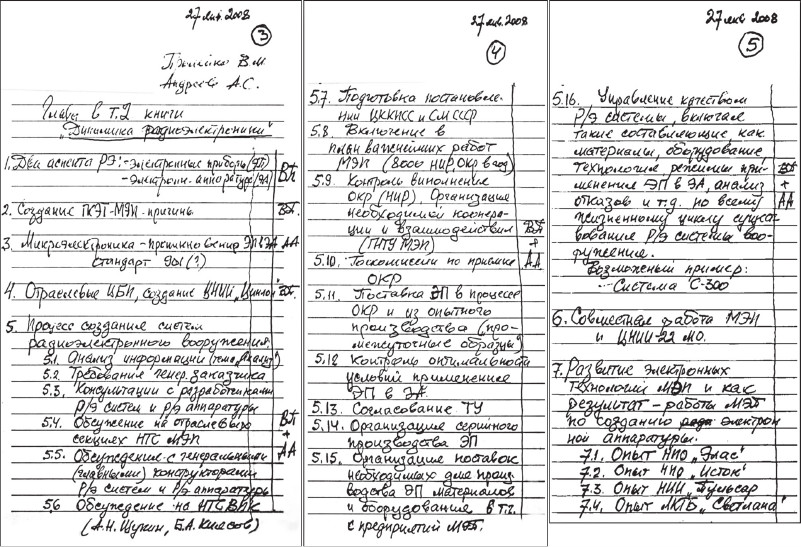 27 янв. 2008
3
Пролейко В.М.
Андреев А.С.
Главы в т.2 книги
"Динамика радиоэлектроники"
1. Два аспекта РЭ: - электронные приборы (ЭП)
- электрон. аппаратура (ЭА)
ВП
2. Создание ГКЭТ-МЭП - причины
ВП.
3. Микроэлектроника - причина
ЭП в ЭА
АА
стандарт 90ы (?)
4. Отраслевые ЦБП, создание ВНИИ "Циклон"
ВП.
5. Процесс создания систем
радиоэлектронного вооружения.
5.1. Анализ информации
5.2. Требование генер. заказчика
5.3. Консультации с разработчиками
Р/Э систем и Р/Э аппаратуры
5.4. Обсуждение на отраслевых
секциях НТС МЭП
ВП
+
АА
5.5. Обсуждение с генеральными
(главными) конструкторами
Р/Э систем и Р/Э аппаратуры
5.6 Обсуждение на НТС ВПК
(А.Н. Щукин, Б.А. Киясов)
27 янв. 2008
4
5.7. Подготовка постановле-
ний ЦК КПСС и См СССР
5.8. Включение в
план важнейших работ
МЭП (8000 НИР, ОКР в год)
5.9. Контроль выполнения
ОКР (НИР). Организация
необходимой коопера-
ции и взаимодействия
(ГНТУ МЭП)
ВП
+
АА
5.10. Госкомиссии по приемке
ОКР
5.11. Поставка ЭП в процессе
ОКР и из опытного
производства (про-
межуточные образцы)
5.12 Контроль оптимальности
условий применения
ЭП в ЭА
5.13. Согласование ТУ
5.14. Организация серийного
производства ЭП
5.15. Организация поставок
необходимых для произ-
водства ЭП материалов
и оборудования в т.ч.
с предприятий МЭП.
27 янв 2008
5
5.16. Управление качеством
Р/Э системы, включая
такие составляющие как
материалы, оборудование,
технология, режимы при-
менения ЭП в ЭА, анализ
отказов и т.д. по всему
жизненному циклу сущест-
вования Р/Э системы воо-
ружение.
ВП
+
АА
Возможный пример:
- Система С-300
6. Совместная работа МЭП
и ЦНИИ-22 МО.
7. Развитие электронных
технологий МЭП и как
результат - работы МЭП
по созданию электрон
ной аппаратуры.
7.1. Опыт НПО "Элас"
7.2. Опыт НПО "Исток"
7.3. Опыт НИИ "Пульсар
7.4. Опыт ЛКТБ "Светлана"